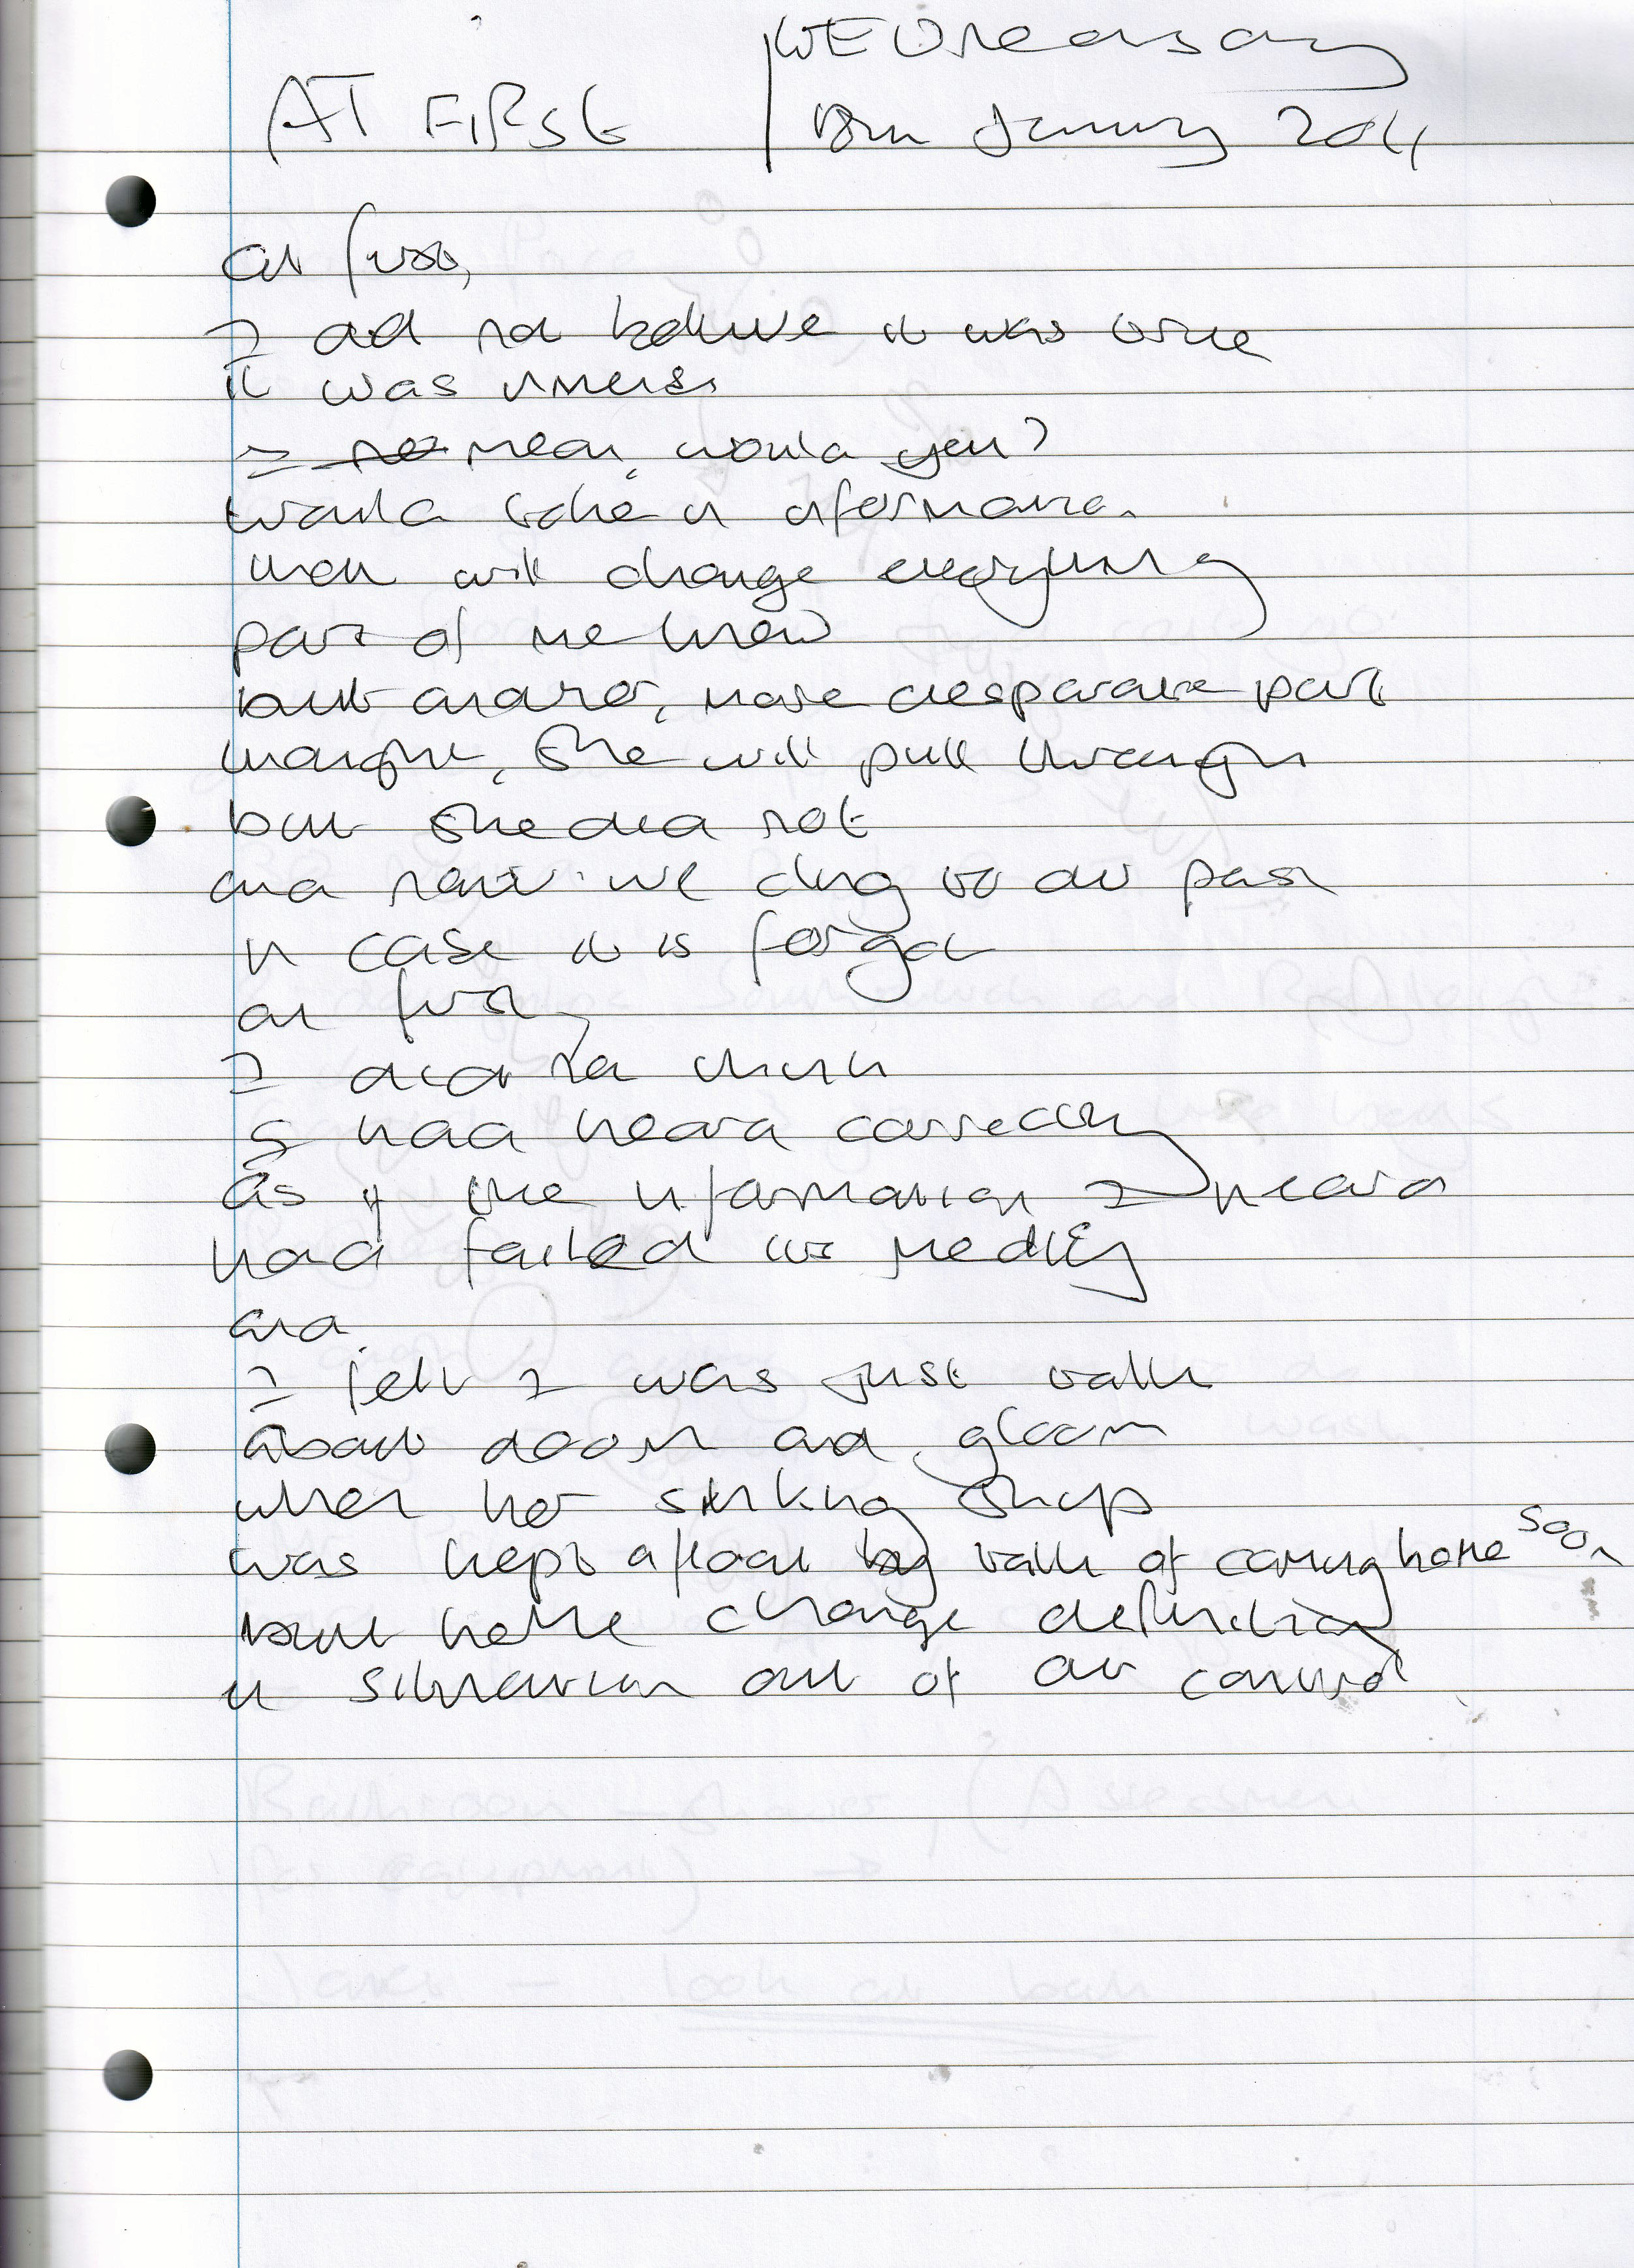 WEDnesday
AT FIRSt 18th January 2011
at first,
I did not believe it was true
it was unreal
I mean, would you?
would take in information
that will change everything
part of me knew
but another, more desparate part
thought, she will pull through
but she did not
and now we cling to our past
in case it is forgot
at first,
I did not think
I had heard correctly
as if the information I heard
had failed its medley
and
I felt I was just talk
about doom and gloom
when her sinking ship
was kept afloat by talk of coming home soon
but home change definition
in situation out of our control